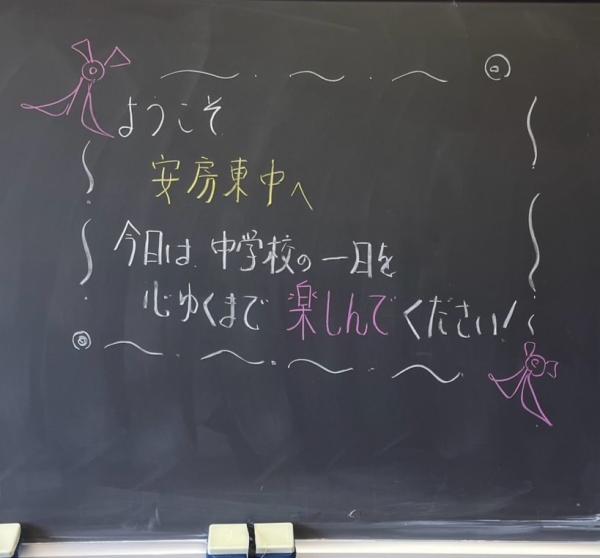 ようこそ
安房東中へ
今日は中学校の一日を
心ゆくまで楽しんでください!